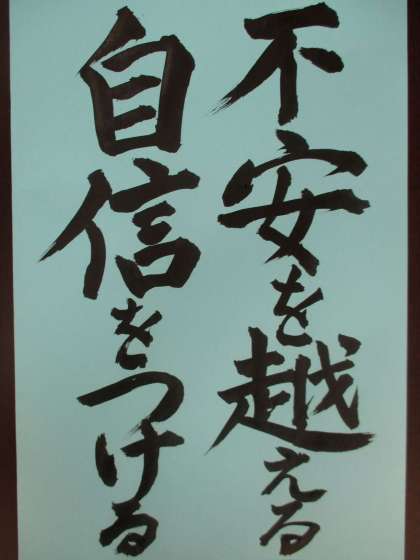 不安を越える
自信をつける